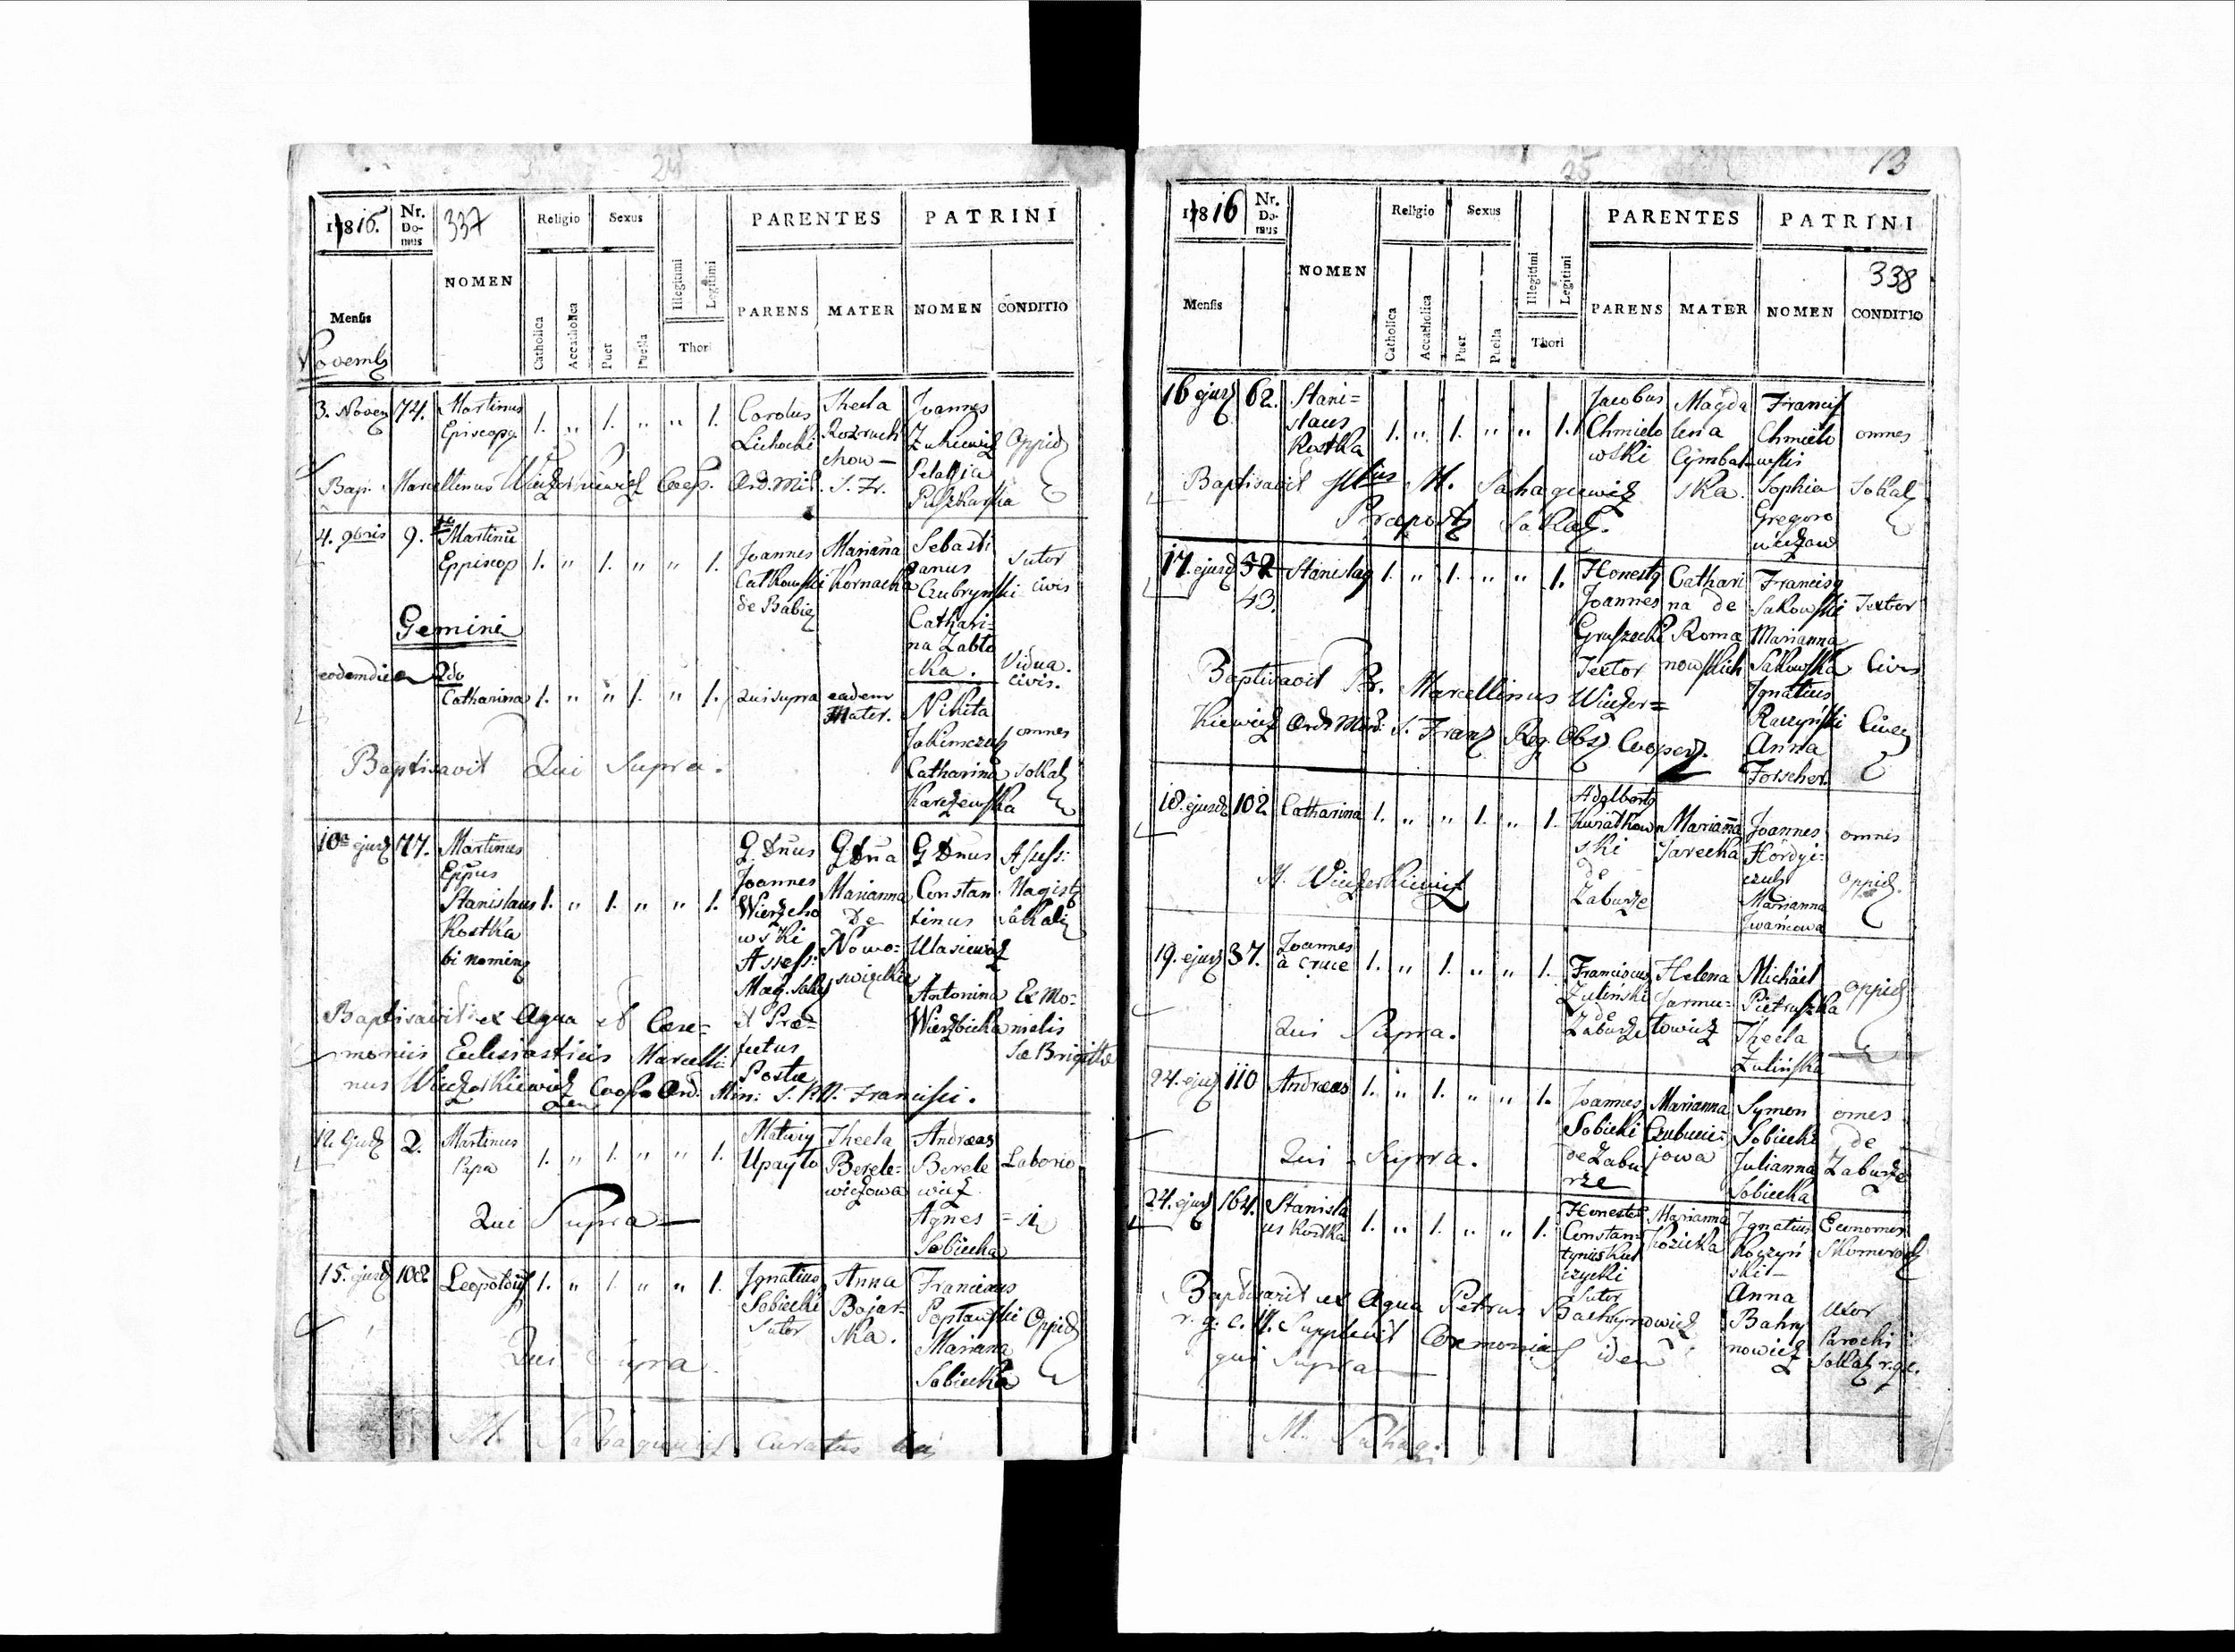 24
1816.
Nr. Domus
337
NOMEN
Religio
Sexus
PARENTES
PATRINI
Mensis
Catholica
Accatholica
Puer
Puella
Illegitimi
Legitimi
Thori
PARENS
MATER
NOMEN
CONDITIO
Novemb
3. Novem 74. Martinus Episcopg 1. " 1. " " 1. Carolus Lichocki Thecla Rozruch chow— Joannes Zukiewicz Pelagia Puszkarska Oppid
Bap. Marcellinus Wieczorkiewicz Coop. Ord. Min. S. Fr.
4. 9bris 9. Martinu Eppiscop 1. " 1. " " 1. Joannes Catkowski de Babie Marianna Kornacka Sebasti anus Czubrynski Sutor civis
Cathari= na Zablo cka. Vidua. civis.
Gemini
eodem die 2do Catharina 1. " " 1. " 1. qui supra eadem Mater. Nikita Jakimczuk Catharina Karczewska omnes Sokal
Baptisavit Qui Supra.
10a ejusd 77. Martinus Eppus Stanislaus Kostka bi noming 1. " 1. " " 1.
G. Dnus Joannes Wierzcho wski Assess: Mag. Sokal et Prae= fectus Postae
G Dna Marianna De Nowo= swieckie
G Dnus Constan tinus Ulasiewicz Assess: Magist Sokali
Antonina Wierzbicka Ex Mo= nialis Sae Brigittae
Baptisavit ex Aqua et Caere=
moniis Eclesiasticis Marcelli
nus Wieczorkiewicz Coop. Ord. Min: S. P. N. Francisci.
12. Ejusd 2. Martinus Papa 1. " 1. " " 1. Matwiy Upayto Thecla Berele= wiczowa Andreas Berele wicz Agnes Sobiecka Laborio
Qui Supra—
15. ejusd 102 Leopoldus 1. " 1. " " 1. Ignatius Sobiecki Sutor Anna Bojar= ska. Franciscus Poptawski Marianna Sobiecka Oppid
Qui Supra
M. Sahaguewicz Curatus
25
13
1816
Nr. Domus
NOMEN
Religio
Sexus
PARENTES
PATRINI
338
Mensis
Catholica
Accatholica
Puer
Puella
Illegitimi
Legitimi
Thori
PARENS
MATER
NOMEN
CONDITIO
16 ejusd 62. Stani= slaus Kostka 1. " 1. " " 1. Jacobus Chmielo wski Magda lena Cymbal ska. Francis Chmielo wskis Sophia Gregoro wiczow omnes Sokal
Baptisavit Illus M. Sahaguewicz
Praeposit Sokal.
17. ejusd 32 43. Stanislag 1. " 1. " " 1. Honestg Joannes Gruszecki Textor Cathari na de Roma nowskich Francisg Sakowski Marianna Sakowska Textor Civis
Ignatius Raczynski Anna Forscher. Cives
Baptisavit Pr. Marcellinus Wieczor=
kiewicz Ord. Min: S. Franc Reg. Obs. Cooper.
18. ejusd 102 Catharina 1. " " 1. " 1. Adalbertg Kwiatkow ski de Zaburze Marianna Jarecka Joannes Hordyi= czuk Marianna Iwaniowa omnes oppid.
M. Wieczorkiewicz
19. ejusd 37. Joannes à Cruce 1. " 1. " " 1. Franciscus Zulinski de Zaburze Helena Jarmu= towicz Michäel Pietruszka Thecla Zulinska oppid
Qui Supra.
24. ejusd 110 Andreas 1. " 1. " " 1. Joannes Sobiecki de Zabu= rze Marianna Czubucie= jowa Symon Sobiecki Julianna Sobiecka omes de Zaburze
Qui Supra.
24. ejusd 164. Stanisla us Kostka 1. " 1. " " 1. Honestus Constan= tynus Kul czycki Sutor Marianna Kozicka Ignatius Roczyn ski— Anna Bahry nowicz Economus Skomoroch Uxor Parochi Sokal r.g.c.
Baptisavit ex Aqua Petrus Bachrynowicz
r. g. c. Supplevit Ceremonias idem
qui Supra—
M. Sahag.